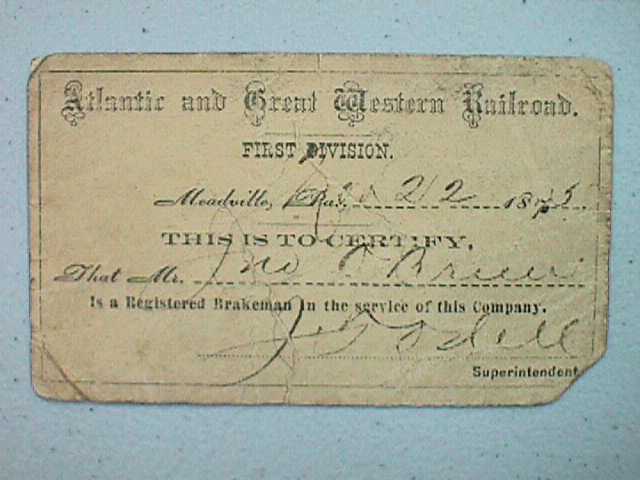 Atlantic and Great Western Railroad.
FIRST DIVISION.
Meadville, Pa., 22 1875
THIS IS TO CERTIFY,
That Mr. Jno O'Brien
Is a Registered Brakeman in the service of this Company.
Superintendent